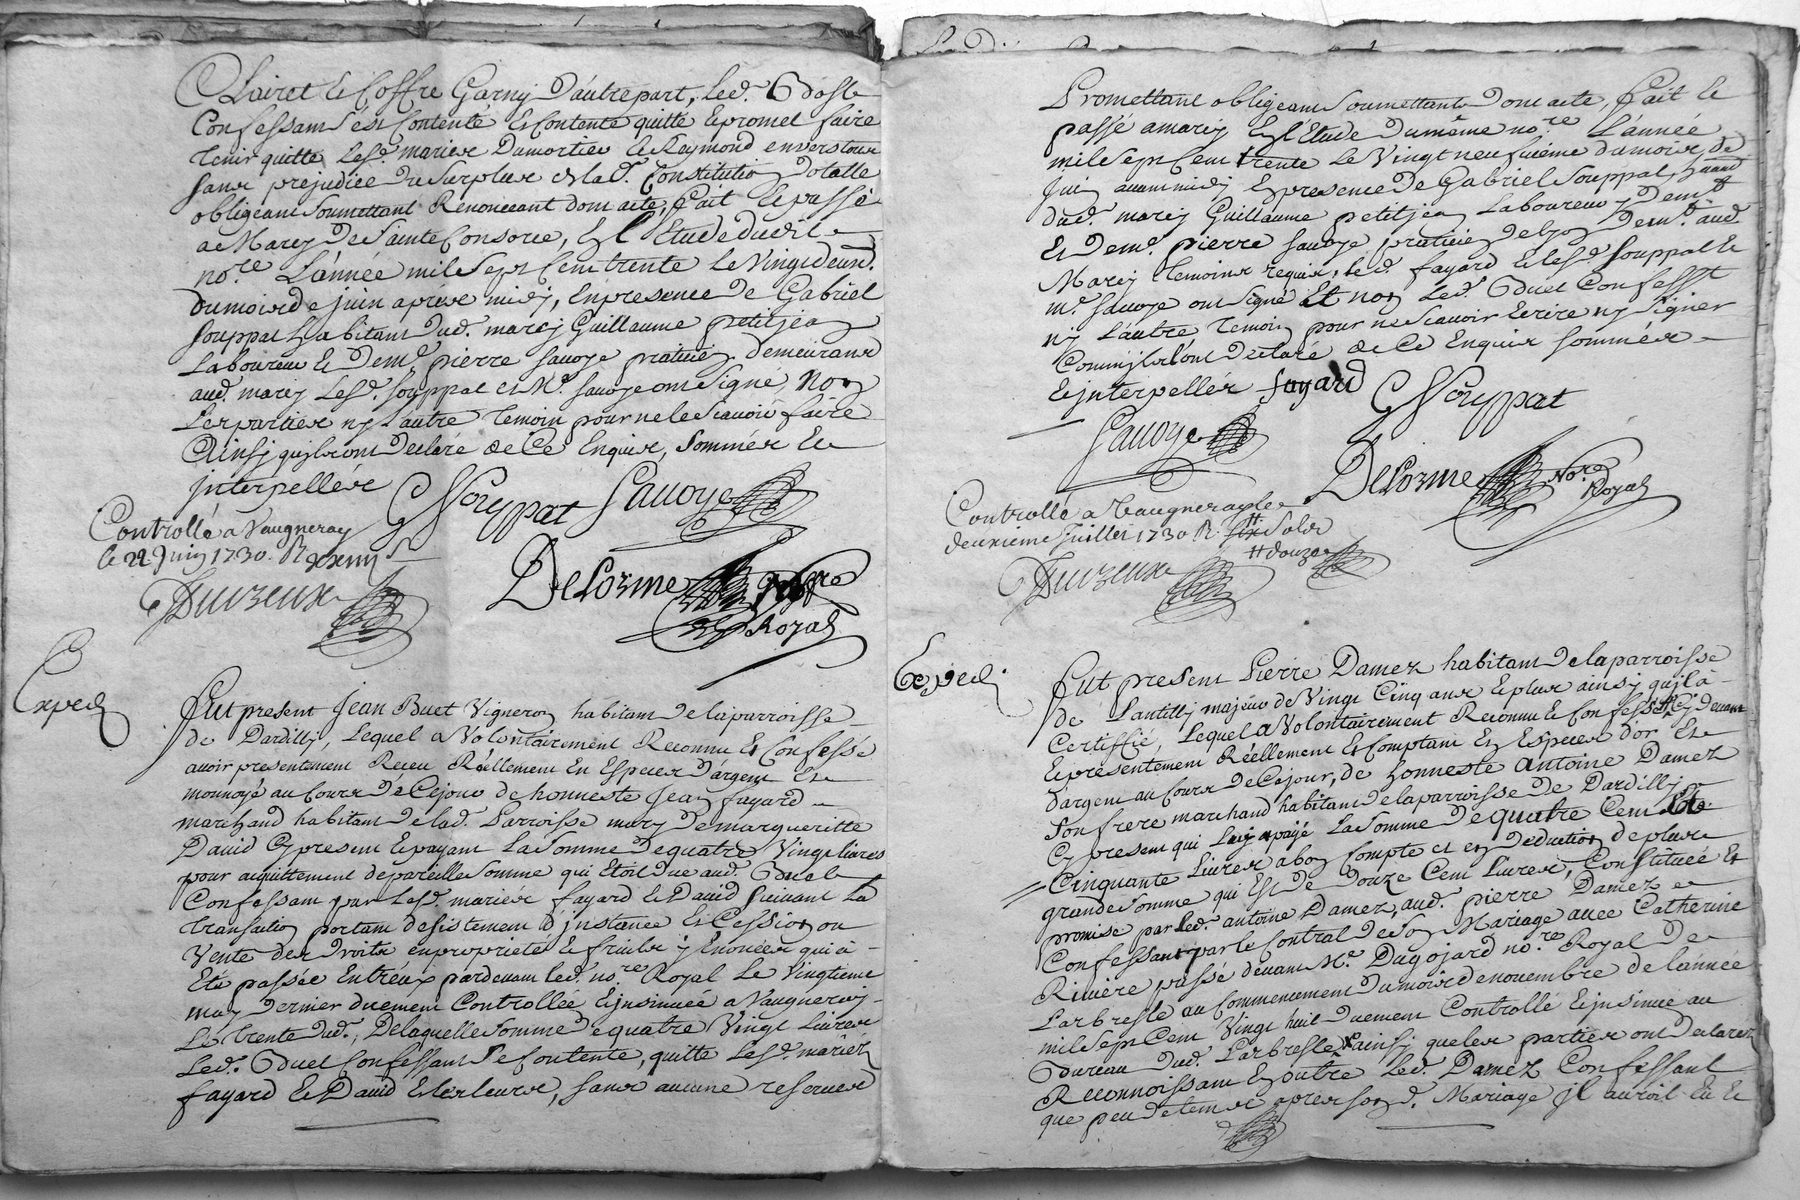 Clairet le Coffre Garny d'autre part, led.
Confessant s'est Contenté et Contente quitte et promet faire
tenir quitte lesd. mariés Dumortier et Reymond envers tous
sans prejudice du surplus de lad. Constitution dotalle
obligeant soumettant Renonceant dont acte, fait et passé
a Marcy de Sainte Consorce, en l'Etude dudit
no.re L'année mil sept Cent trente le Vingt deux.
du mois de juin après midy, En presence de Gabriel
Souppat habitant dud. marcy Guillaume petitjean
Laboureur et dem.e pierre Sauoye praticien demeurant
aud. marcy Lesd. souppat et M.e sauoye ont signé, Non
Les parties ny l'autre temoin pour ne le scauoir faire
Ainsy qu'ils ont declaré de Ce Enquis, sommés Et
jnterpellés GSouppat Sauoye
Controllé a Vaugneray
le 22 Juin 1730. R
Delorme no.re
Royal
Exped
Fut present Jean Buet Vigneron habitant de la parroisse
de Dardilly, Lequel a Volontairement Reconnu Et Confessé
auoir presentement Receu Réellement En Especes d'argent Et
monnoye au Cours de Cejour de honneste Jean fayard
marchand habitant de lad. Parroisse mary de margueritte
David Cy present Et payant La Somme de quatre Vingt liures
pour acquittement de pareille somme qui Etoit due aud. Buet
Confessant par Lesd. mariés fayard Et David suiuant La
transaction portant desistement d'jnstance Et Cession ou
Vente des droits en proprieté et fruits y Enoncés qui à
Eté passée Entreux pardeuant led. no.re Royal Le Vingtieme
may dernier duement Controllée Et jnsinuée a Vaugneray
Le trente dud., De laquelle somme de quatre Vingt Liures
Led. Buet Confessant se Contente, quitte Lesd. mariés
fayard Et David Et les leurs, sans aucune reserues
Promettant obligeant soumettant dont acte, fait Et
passé a marcy En l'Etude du même no.re L'année
mil sept Cent trente Le Vingt neufuieme du mois de
Juin auant midy En presence De Gabriel souppat,
dud. marcy Guillaume petitjean Laboureur y dem.t
Et dem.e pierre sauoye praticien de Lyon dem.t aud.
Marcy temoins requis, led. fayard et lesd. souppat Et
m.e sauoye ont signé Et non led. Buet Confess.t
ny L'autre temoin pour ne scauoir Ecrire ny signer
Comm'jls l'ont declaré de Ce Enquis sommés
Et jnterpellés fayard GSouppat
Sauoye
Delorme No.re
Royal
Controllé a Vaugneray le
deuxieme Juillet 1730 R.
douze
Exped
Fut present Pierre Damez habitant de la parroisse
de Lantilly majeur de Vingt Cinq ans Et plus ainsy qu'jl à
Certiffié, Lequel a Volontairement Reconnu Et Confessé
Et presentement Réellement Et Comptant En Especes d'or Et
d'argent au Cours de Cejour, de honneste Antoine Damez
son frere marchand habitant de la parroisse de Dardilly
Cy present qui Luy a payé La Somme de quatre Cent
Cinquante Liures a bon Compte et en deduction de plus
grande somme qui Est de douze Cent Liures, Constituée Et
promise par led. antoine Damez, aud. pierre Damez
Confessant par le Contrat de son Mariage auec Catherine
Riuiere passé deuant M.e Dugojard no.re Royal de
Larbresle au Commencement du mois de nouembre de l'année
mil sept Cent Vingt huit duement Controllé Et jnsinué au
Bureau dud. Larbresle ainsy que les parties ont declaré
Reconnoissant En outre Led. Damez Confessant
que peu de tems apres son d. Mariage jl auroit Eu Et